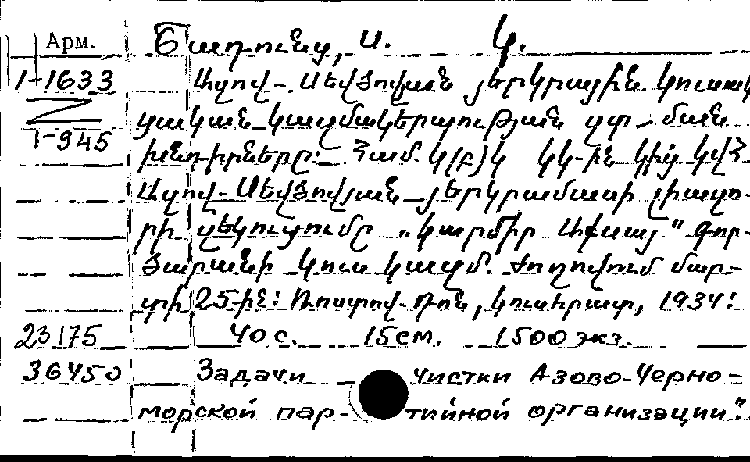 Арм. Շադունց, Ս. Կ.
1-1633 Ազով-Սեվծովյան յերկրային կուսակ
1-945 ցական կազմակերպության զտ-ման
խնդիրները: Համ. Կ(բ)Կ ԿԿ-ին կից ԿՎՀ
Ազով-Սեվծովյան յերկրամասի լիազո-
րի զեկուցումը „Կարմիր Ափսայ" գոր-
ծարանի կուս կազմ. ժողովում մար-
տի 25-ին: Ռոստով-Դոն, կուսհրատ, 1934:
23175 40 с. 15 см. 1500 экз.
36450 Задачи чистки Азово-Черно-
морской пар- тийной организации".